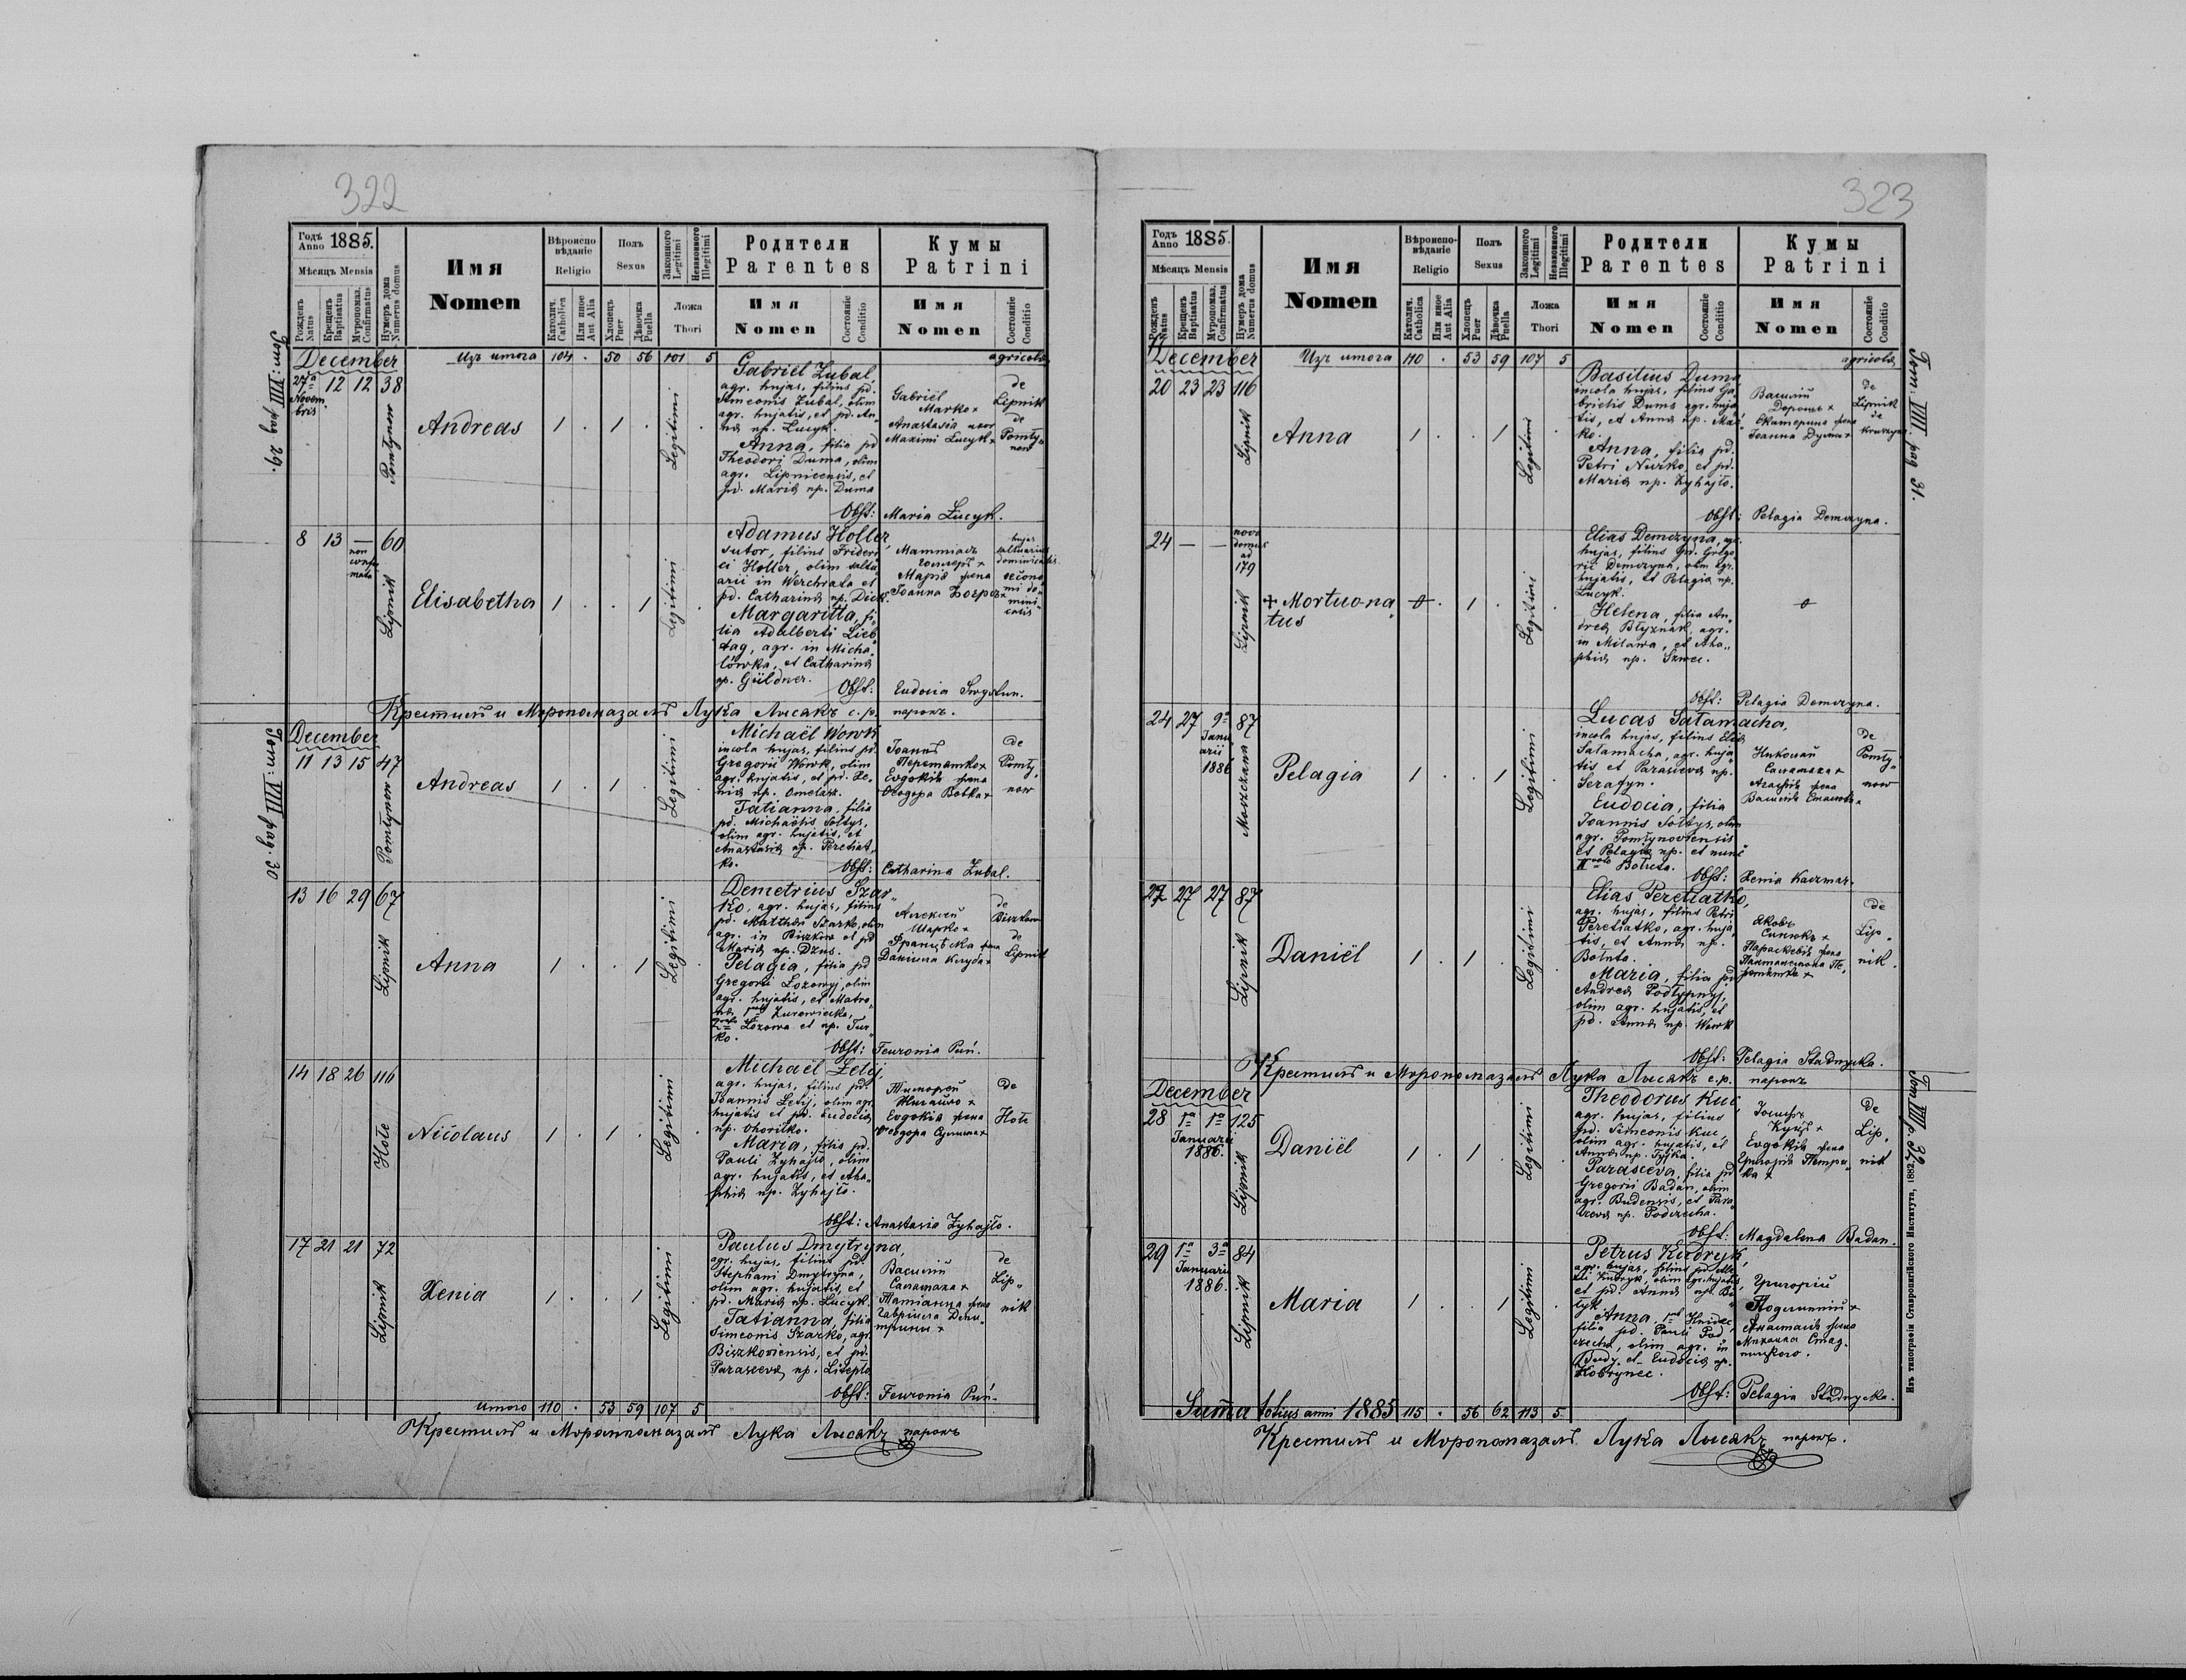 322
Годъ Anno 1885.
Мѣсяцъ Mensis
Рожденъ Natus
Крещенъ Baptisatus
Муропомаз. Confirmatus
Нумеръ дома Numerus domus
Имя
Nomen
Вѣроисповѣданіе
Religio
Католич. Catholica
Или иное Aut Alia
Полъ
Sexus
Хлопецъ Puer
Дѣвочка Puella
Законного Legitimi
Незаконного Illegitimi
Ложа
Thori
Родители
Parentes
Имя
Nomen
Состояніе Conditio
Кумы
Patrini
Имя
Nomen
Состояніе Conditio
Tom: VIII pag 29.
December
Изъ итога 104 . 50 56 101 5
agricolae
27a Novembris 12 12 38
Pomłynow
Andreas
1 . 1 .
Legitimi
Gabriel Zubal,
agr. hujas, filius pd.
Simeonis Zubal, olim
agr. hujatis, et pd. An-
nae np. Lucyk.
Anna, filia pd
Theodori Duma, olim
agr. Lipnicensis, et
pd. Mariae np. Duma
Gabriel
Marko +
Anastasia uxor
Maximi Lucyk +
de
Lipnik
de
Pomły-
now
Obst: Maria Lucyk.
8 13 —
non confirmata
60
Lipnik
Elisabetha
1 . . 1
Legitimi
Adamus Holler,
sutor, filius Frideri
ci Holler, olim saltu
arii in Werchrata et
pd. Catharinae np. Dick.
Margaritta, fi-
lia Adalberti Lieb
tag, agr. in Micha-
lówka, et Catharinae
np. Güldner.
hujas
saltuarius
dominicalis
Марія жена
Obst: Eudocia
Крестилъ и Мѵропомазалъ Лука Лысакъ с.р. парохъ.
Tom: VIII pag. 30
December
11 13 15 47
Pomłynow
Andreas
1 . 1 .
Legitimi
Michaël Wowk
incola hujas, filius pd.
Gregorii Wowk, olim
agr. hujatis, et pd. Xe-
niae np. Ometiuch.
Tatianna, filia
pd. Michaëlis Sołtys,
olim agr. hujatis, et
Anastasiae np. Peretiat-
ko.
Іоаннъ
Перетятко +
Евдокія жена
Ѳеодора Вовка +
de
Pomły-
now
Obst: Catharina Zubal.
13 16 29 67
Lipnik
Anna
1 . . 1
Legitimi
Demetrius Szar-
ko, agr. hujas, filius
pd. Matthei Szarko, olim
agr. in Biszkow et pd
Mariae np. Dzus.
Pelagia, filia pd
Gregorii Łozowyj, olim
agr. hujatis, et Matro-
Łozowa et np. Tur-
ko.
Алексій
Шарко +
Францѣска жена
de
Biszkow
de
Lipnik
Obst: Feuronia Puń.
14 18 26 116
Hołe
Nicolaus
1 . 1 .
Legitimi
Michaël Letij,
agr. hujas, filius pd.
Joannis Letij, olim agr.
hujatis et pd. Eudociae
np. Ohorilko.
Maria, filia pd.
Pauli Zyhajło, olim
agr. hujatis, et Aha-
phiae np. Zyhajło.
Тимофей
Жигайло +
Евдокія жена
de
Hołe
Obst: Anastasia Zyhajło.
17 21 21 72
Lipnik
Xenia
1 . . 1
Legitimi
Paulus Dmytryna,
agr. hujas, filius pd.
Stephani Dmytryna,
olim agr. hujatis, et
pd. Mariae np. Lucyk.
Tatianna, filia
Simeonis Szarko, agr.
Biszkoviensis, et pd.
Parascevae np. Litepło
Василій
Саламаха +
Татіанна жена
Гавріила
de
Lip-
nik
Obst: Feuronia Puń.
итого 110 . 53 59 107 5
Крестилъ и Мѵропомазалъ Лука Лысакъ парохъ
323
Годъ Anno 1885.
Мѣсяцъ Mensis
Рожденъ Natus
Крещенъ Baptisatus
Муропомаз. Confirmatus
Нумеръ дома Numerus domus
Имя
Nomen
Вѣроисповѣданіе
Religio
Католич. Catholica
Или иное Aut Alia
Полъ
Sexus
Хлопецъ Puer
Дѣвочка Puella
Законного Legitimi
Незаконного Illegitimi
Ложа
Thori
Родители
Parentes
Имя
Nomen
Состояніе Conditio
Кумы
Patrini
Имя
Nomen
Состояніе Conditio
Tom: VIII pag 31.
December
Изъ итога 110 . 53 59 107 5
agricolae
20 23 23 116
Lipnik
Anna
1 . . 1
Legitimi
Basilius Duma,
incola hujas, filius Ga
brielis Duma agr. huja
tis, et Annae np. Mar-
ko.
Anna, filia pd.
Petri Nurko, et pd.
Mariae np. Zyhajło.
Василій
Дорошъ +
Екатерина жена
Іоанна Дума +
de
Lipnik
de
Obst: Pelagia Demczyna.
24 — —
nova domus ad 179
Lipnik
+ Mortuo-na
tus
0 . 1 .
Legitimi
Elias Demczyna, agr.
hujas, filius Gr. Grego
rii Demczyna, olim agr.
hujatis, et Pelagiae np.
Lucyk.
Helena, filia An-
dreae Błyzniak, agr.
in Milawa, et Aha-
phiae np. Szwec.
0
Obst: Pelagia Demczyna.
24 27 9a Januarii 1886
87
Moszczana
Pelagia
1 . . 1
Legitimi
Lucas Sałamacha,
incola hujas, filius Eliae
Sałamacha, agr. huja
tis et Parascevae np.
Serafyn.
Eudocia, filia
Joannis Sołtys, olim
agr. Pomłynoviensis
et Pelagiae np. et nunc
Bołuta.
Николай
Саламаха +
Агафія жена
Василія
de
Pomły-
now
Obst: Xenia Kaczmar.
27 27 27 87
Lipnik
Daniël
1 . 1 .
Legitimi
Elias Peretiatko,
agr. hujas, filius Petri
Peretiatko, agr. huja
tis, et Annae np.
Bołuta.
Maria, filia pd
Andreae Podłypnyj,
olim agr. hujatis, et
pd. Annae np. Wowk
Яковъ
Синюкъ +
Параскевія жена
Пантелеимона Пе-
ретятка +
de
Lip-
nik.
Obst: Pelagia Stadnycka.
Крестилъ и Мѵропомазалъ Лука Лысакъ с.р. парохъ
Tom VIII p. 32
December
28 1a 1a Januarii 1886.
125
Lipnik
Daniël
1 . 1 .
Legitimi
Theodorus Kuc,
agr. hujas, filius
pd. Simeonis Kuc,
olim agr. hujatis, et
Annae np. Tyżka.
Parasceva, filia pd
Gregorii Badan, olim
agr. Budensis, et Para
scevae np. Podzicha.
Іосифъ
Куцъ +
Евдокія жена
Григорія Петри-
ка +
de
Lip-
nik
Obst: Magdalena Badan.
29 1a 3a Januarii 1886.
84
Lipnik
Maria
1 . . 1
Legitimi
Petrus Kudryk,
agr. hujas, filius pd. Ale
xii Kudryk, olim agr. hujatis,
et pd. Annae np.
Anna,
filia pd. Pauli Pod-
olim agr. in
Budy, et Eudociae np.
Kobrynec.
Григорій
Подлипній +
Анастасія жена
Михаила Стад-
ницкого.
Obst: Pelagia Stadnycka.
Suma totius anni 1885 115 . 56 62 113 5
Крестилъ и Мѵропомазалъ Лука Лысакъ парохъ.
Изъ типографіи Ставропигійского Института, 1882.